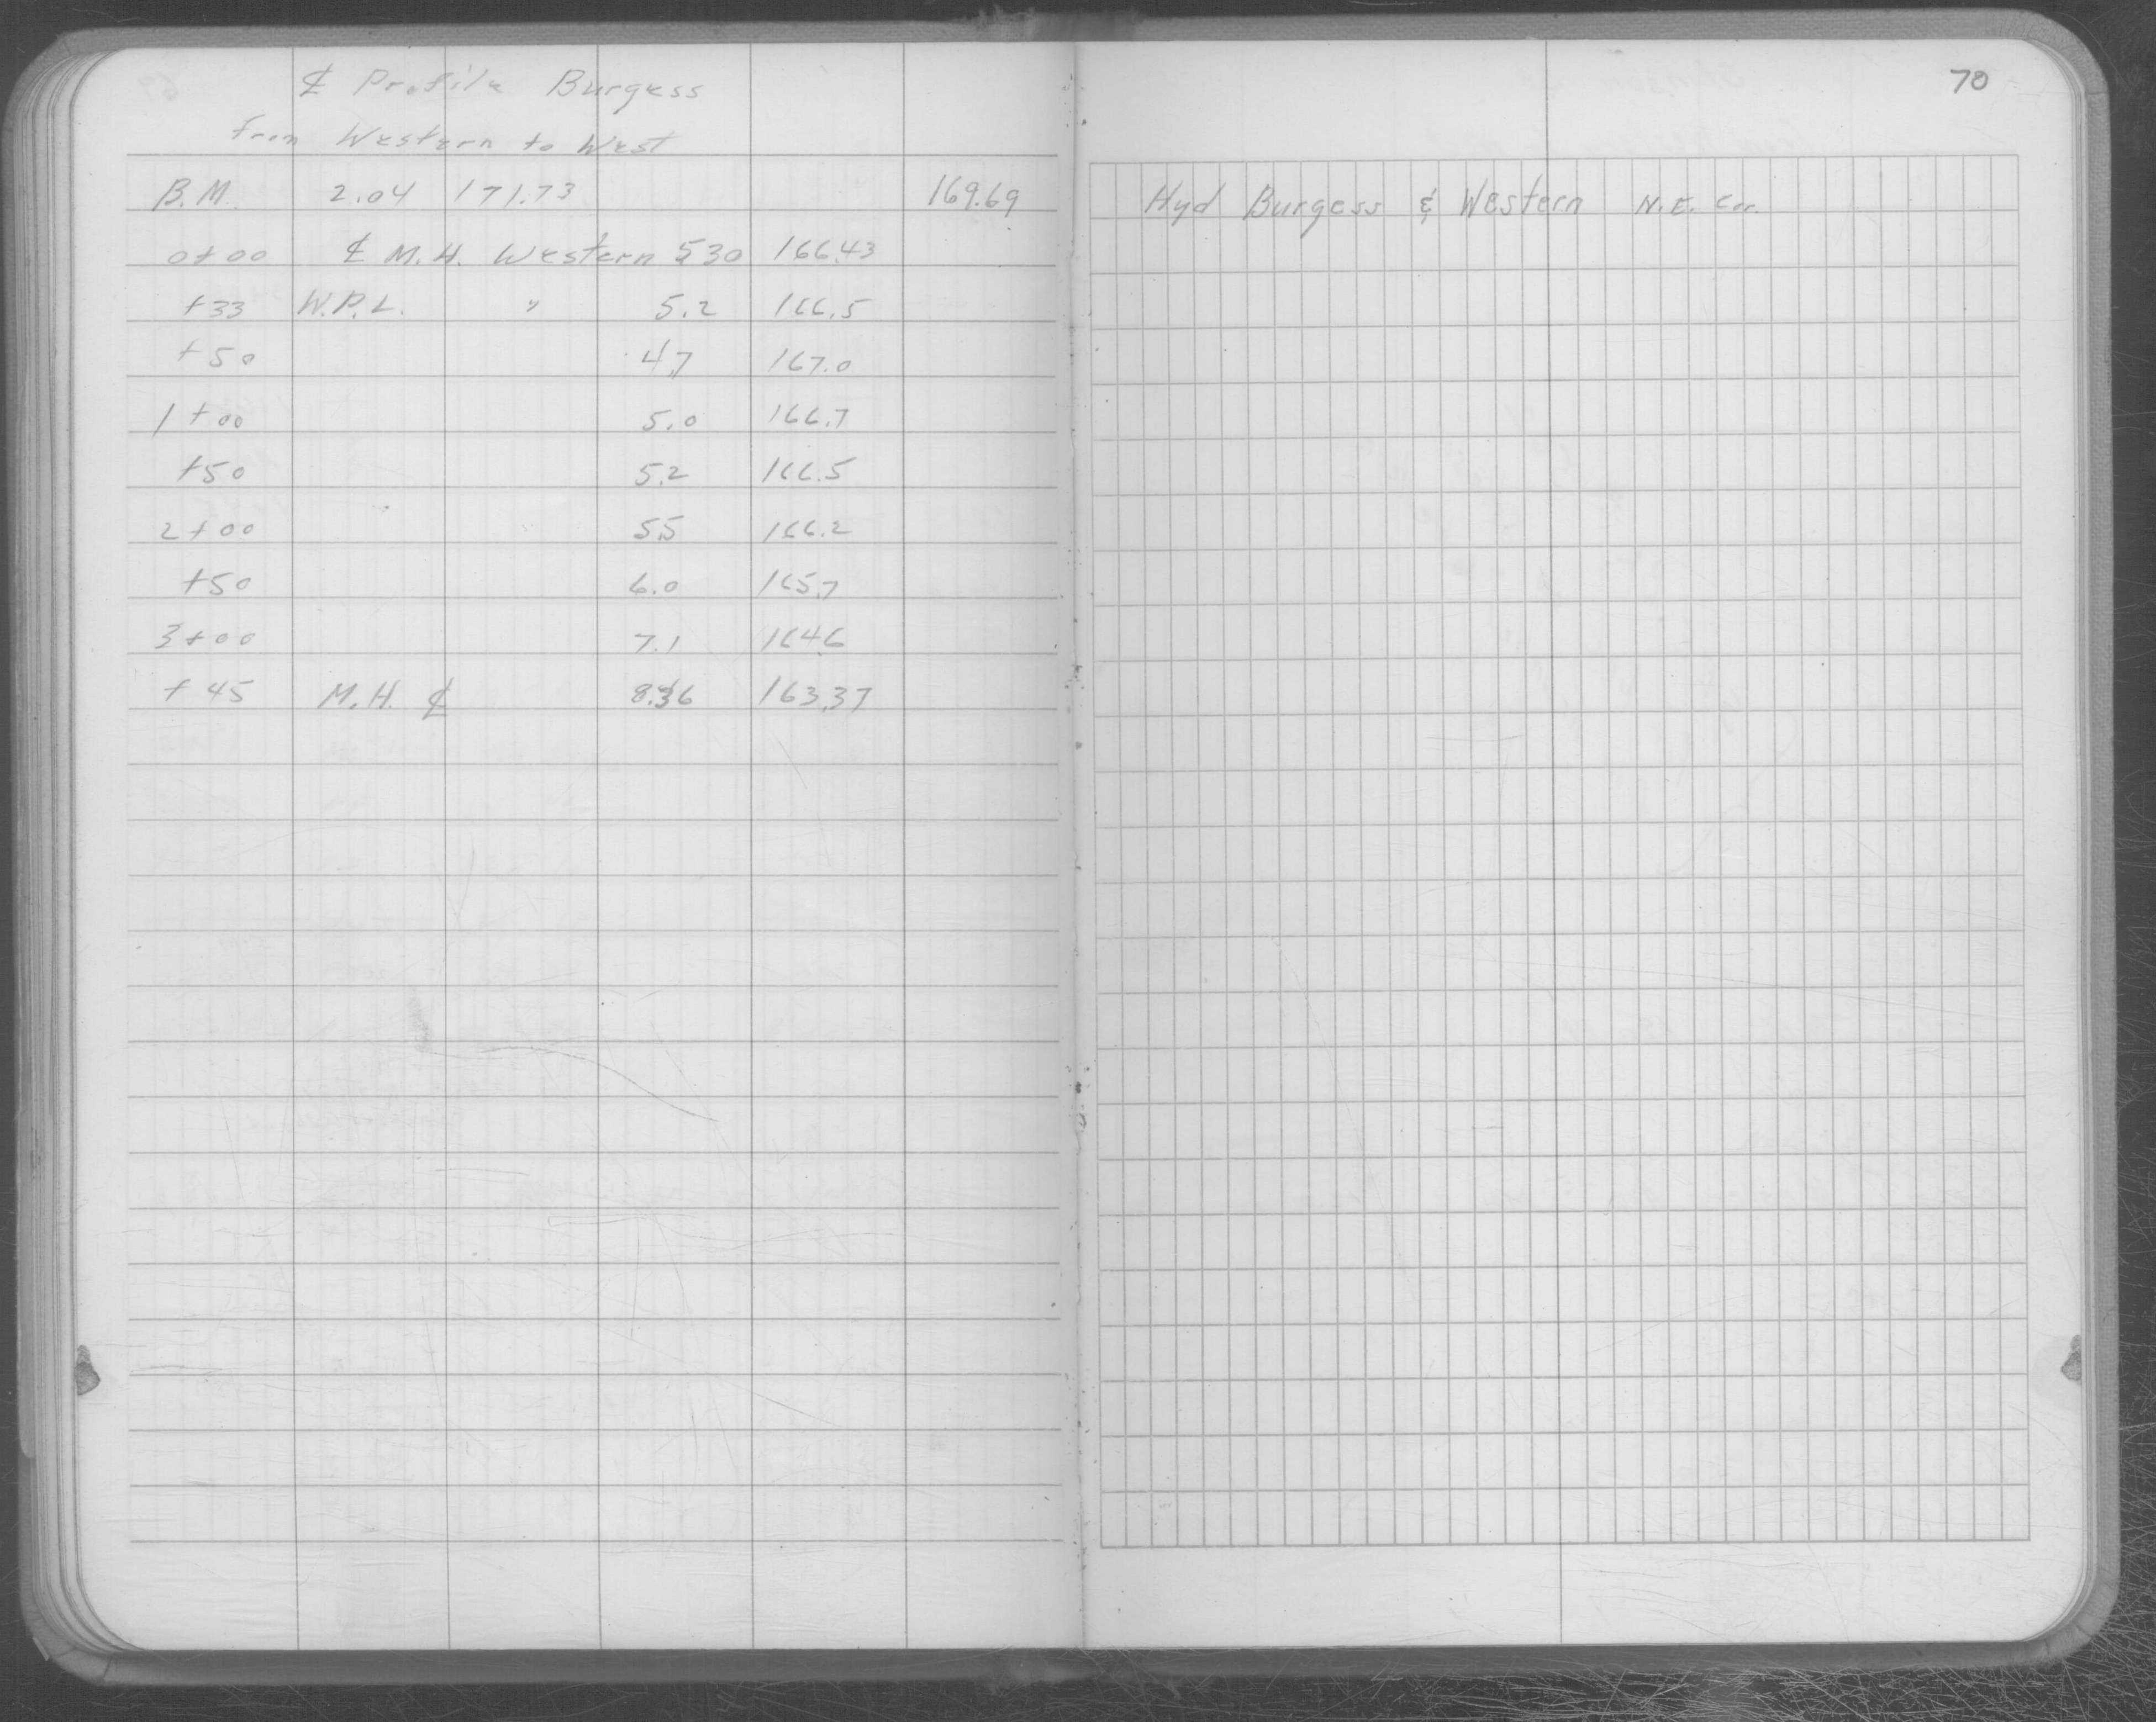 ℄ Profile Burgess
From Western to West
B.M. 2.04 171.73 169.69
0+00 ℄ M.H. Western 5.30 166.43
+33 W.P.L. " 5.2 166.5
+50 4.7 167.0
1+00 5.0 166.7
+50 5.2 166.5
2+00 5.5 166.2
+50 6.0 165.7
3+00 7.1 164.6
+45 M.H. ℄ 8.36 163.37
70
Hyd Burgess & Western N.E. Cor.